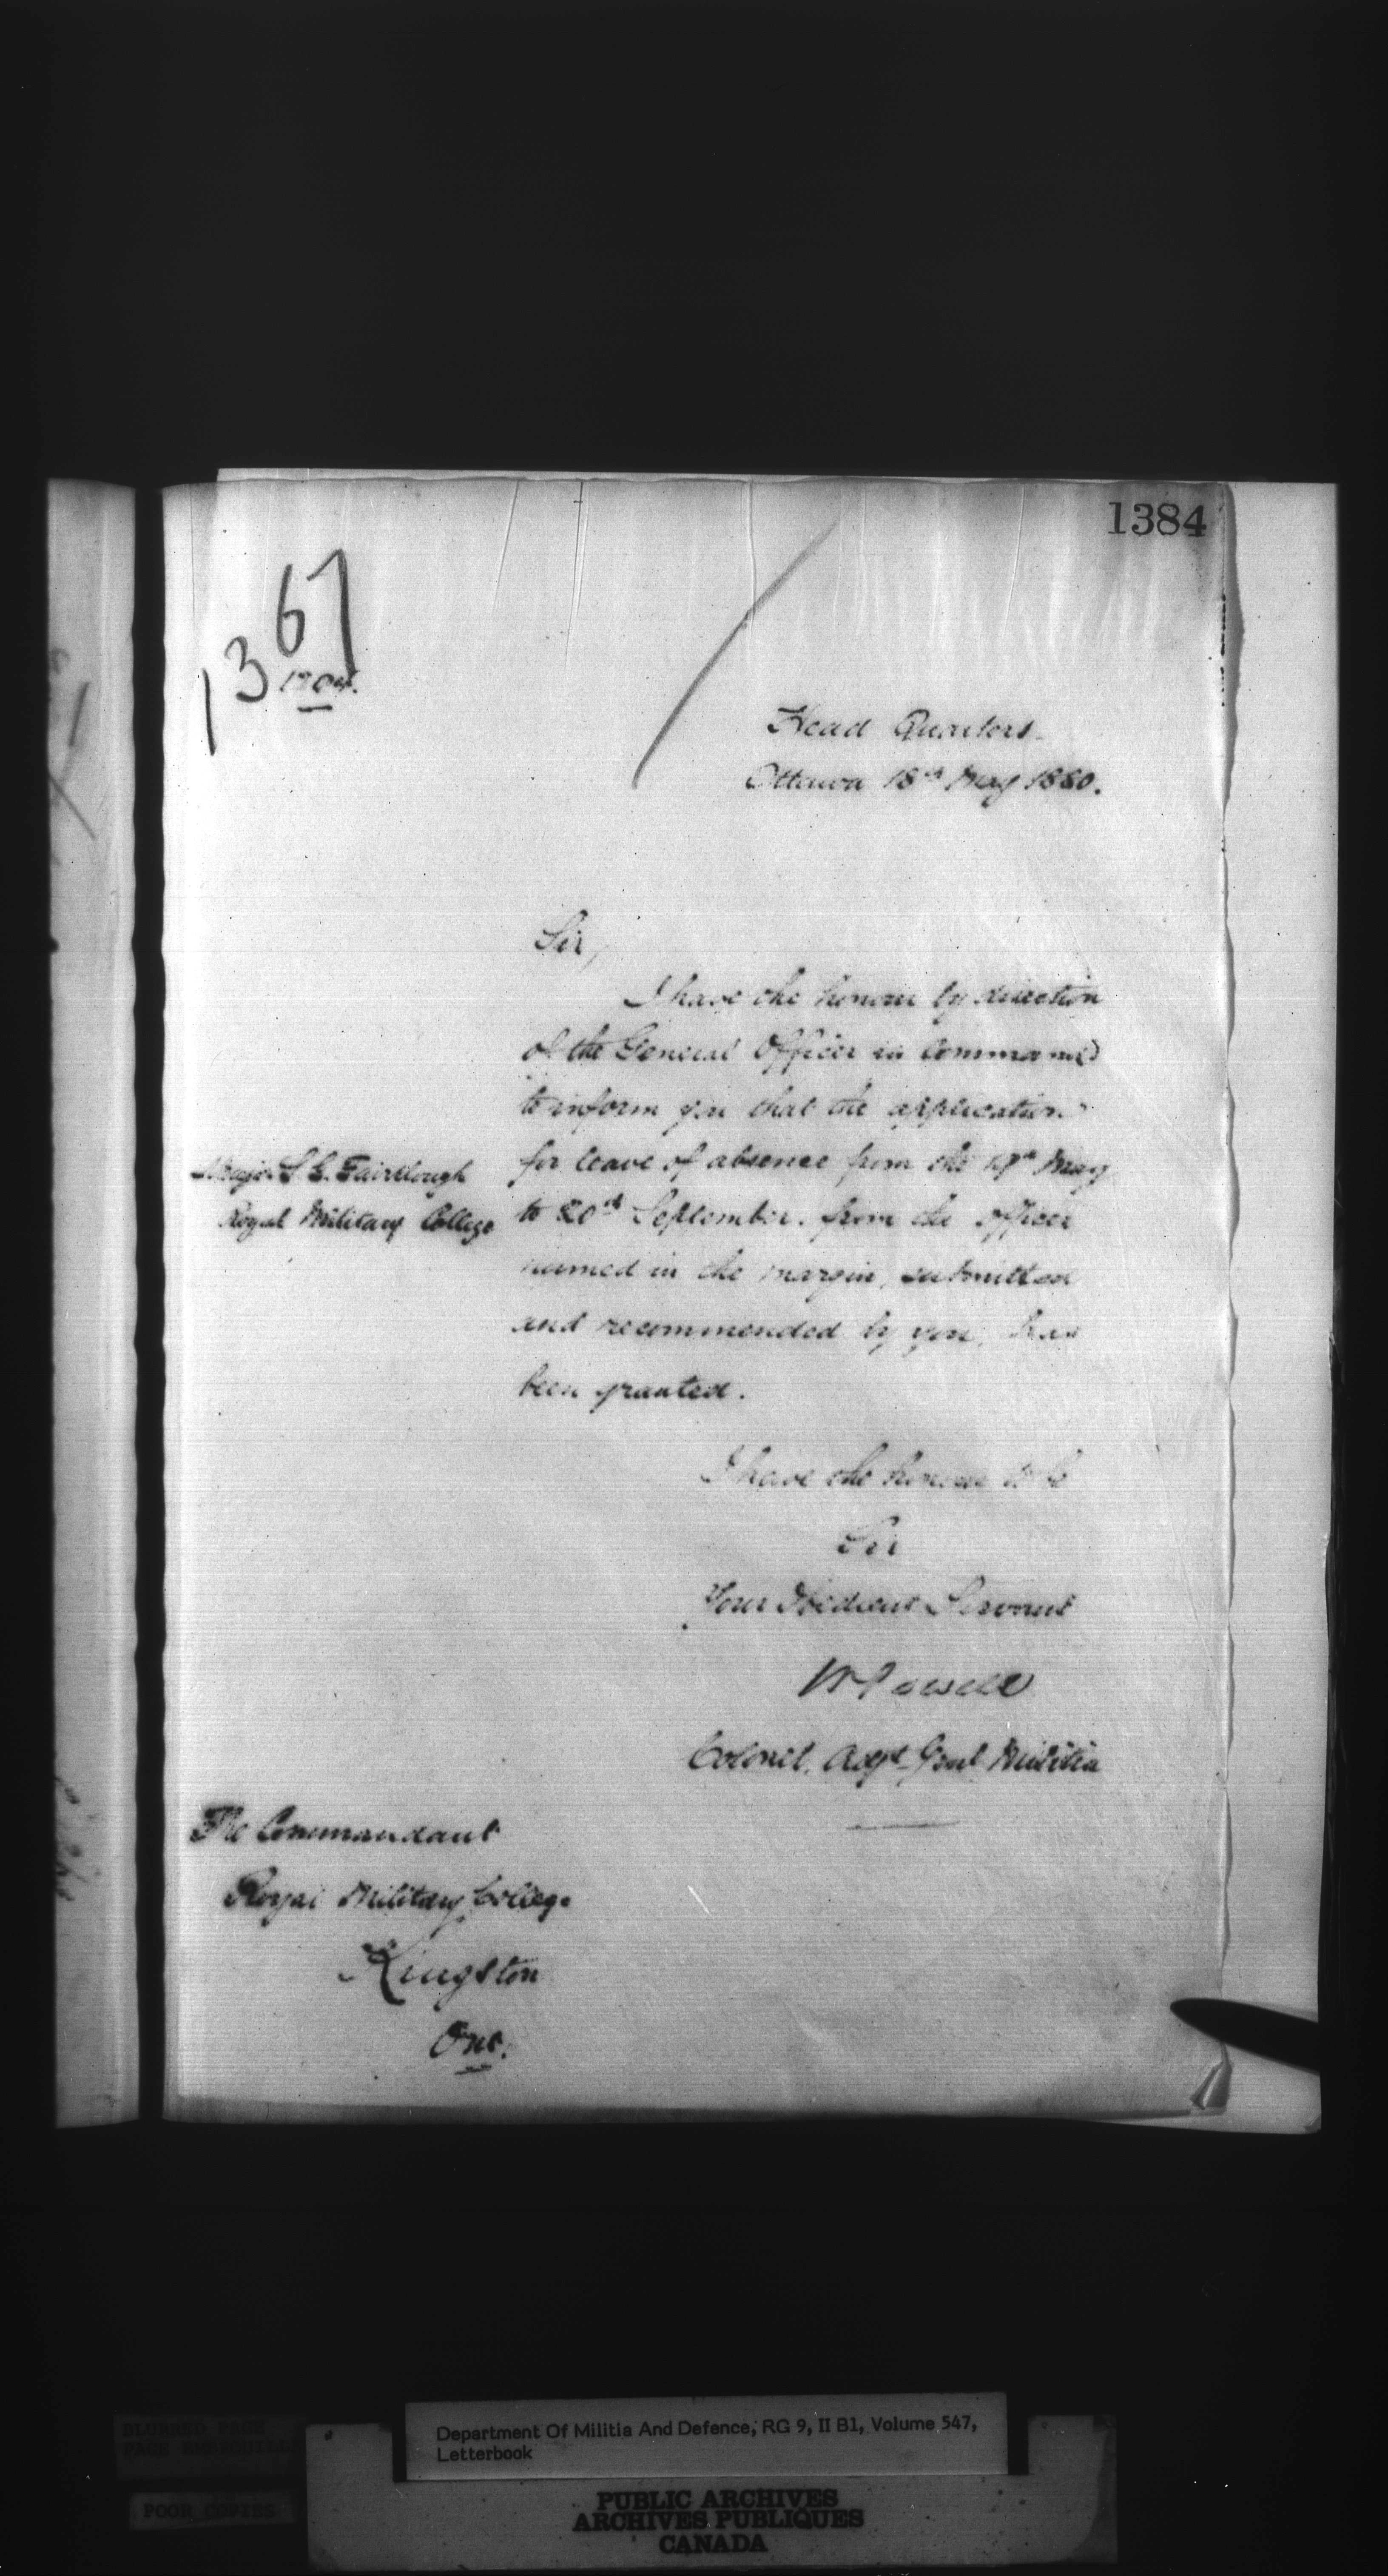 1384
1367
1204.
Head Quarters
Ottawa 18th May 1880.
Sir,
I have the honour by direction
of the General Officer in Command
to inform you that the application
for leave of absence from the 19th May
to 20th September. from the officer
named in the margin, submitted
and recommended by you, has
been granted.
Major S. G. Fairtlough
Royal Military College
I have the honour to be
Sir
Your Obedient Servant
W Powell
Colonel. Adjt Genl Militia
The Commandant
Royal Military College
Kingston
Ont.
BLURRED PAGE
PAGE EMBROUILLÉE
POOR COPIES
Department Of Militia And Defence, RG 9, II B1, Volume 547,
Letterbook
PUBLIC ARCHIVES
ARCHIVES PUBLIQUES
CANADA